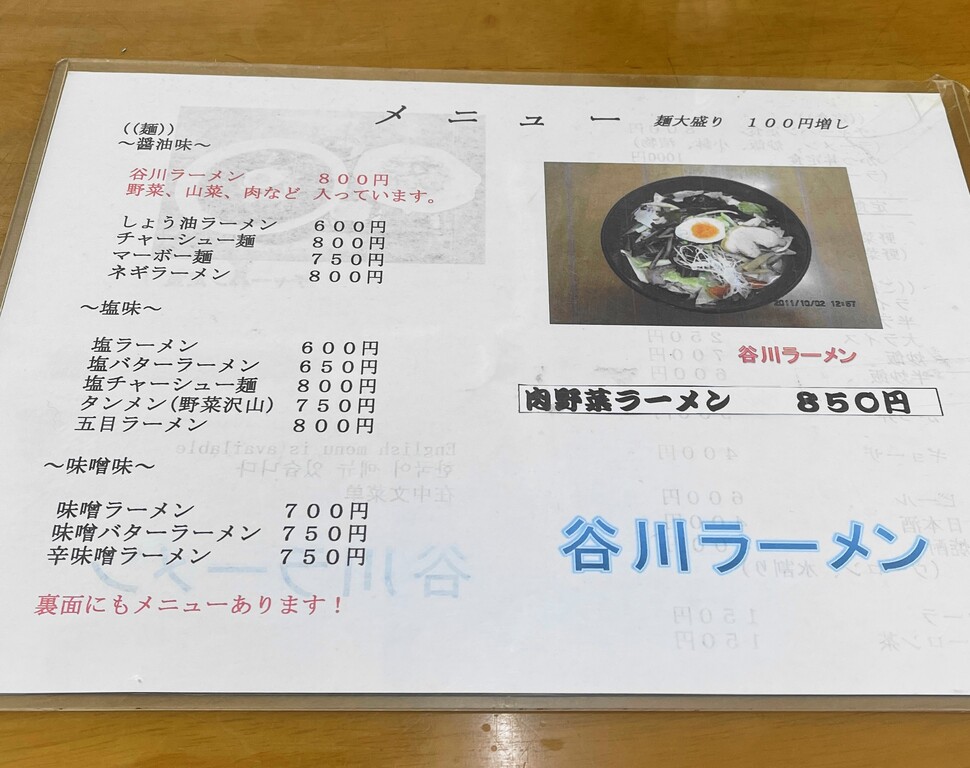 メニュー 麺大盛り 100円増し
((麺))
～醤油味～
谷川ラーメン 800円
野菜、山菜、肉など 入っています。
しょう油ラーメン 600円
チャーシュー麺 800円
マーボー麺 750円
ネギラーメン 800円
～塩味～
塩ラーメン 600円
塩バターラーメン 650円
塩チャーシュー麺 800円
タンメン(野菜沢山) 750円
五目ラーメン 800円
～味噌味～
味噌ラーメン 700円
味噌バターラーメン 750円
辛味噌ラーメン 750円
裏面にもメニューあります！
2011/10/02 12:57
谷川ラーメン
肉野菜ラーメン 850円
谷川ラーメン
English menu is available
한국어 메뉴 있습니다
在中文菜单